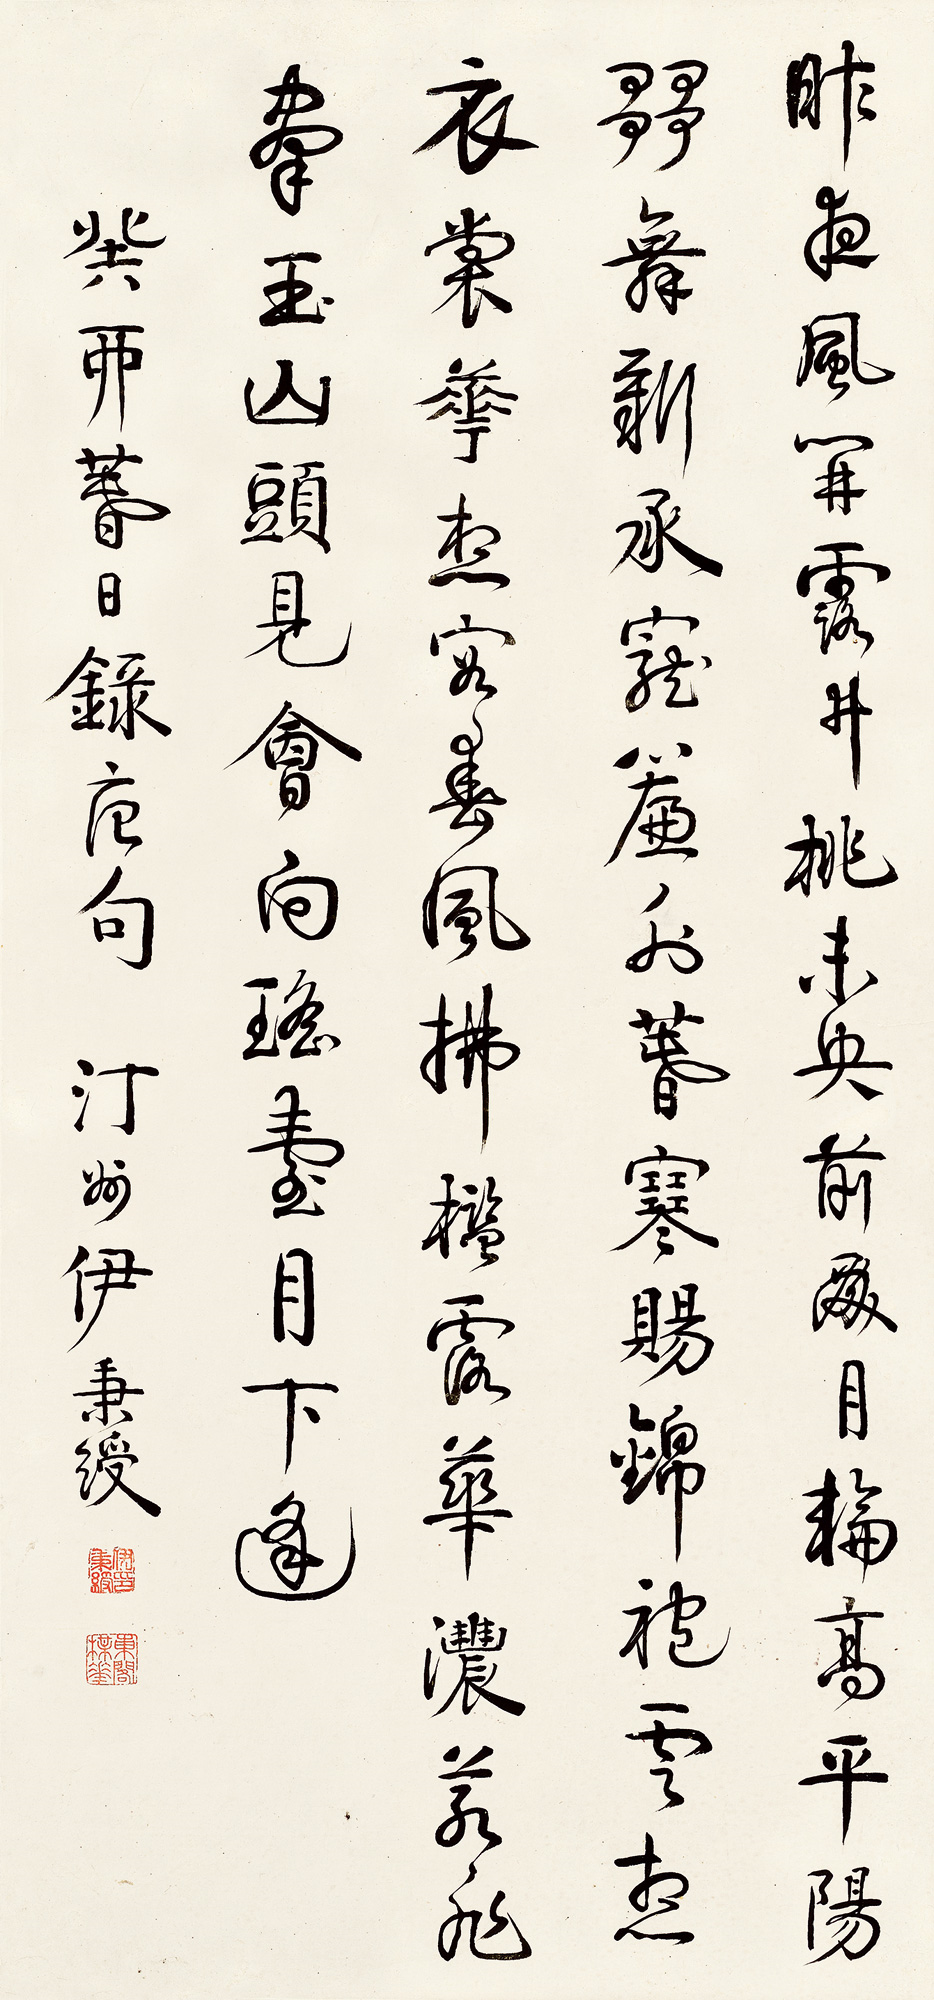 昨夜風開露井桃未央前殿月輪高平陽
歌舞新承寵簾外春寒賜錦袍雲想
衣裳華想容春風拂檻露華濃若非
羣玉山頭見會向瑤臺月下逢
癸酉春日錄唐句 汀州伊秉綬
伊秉綬印
東閣楳華